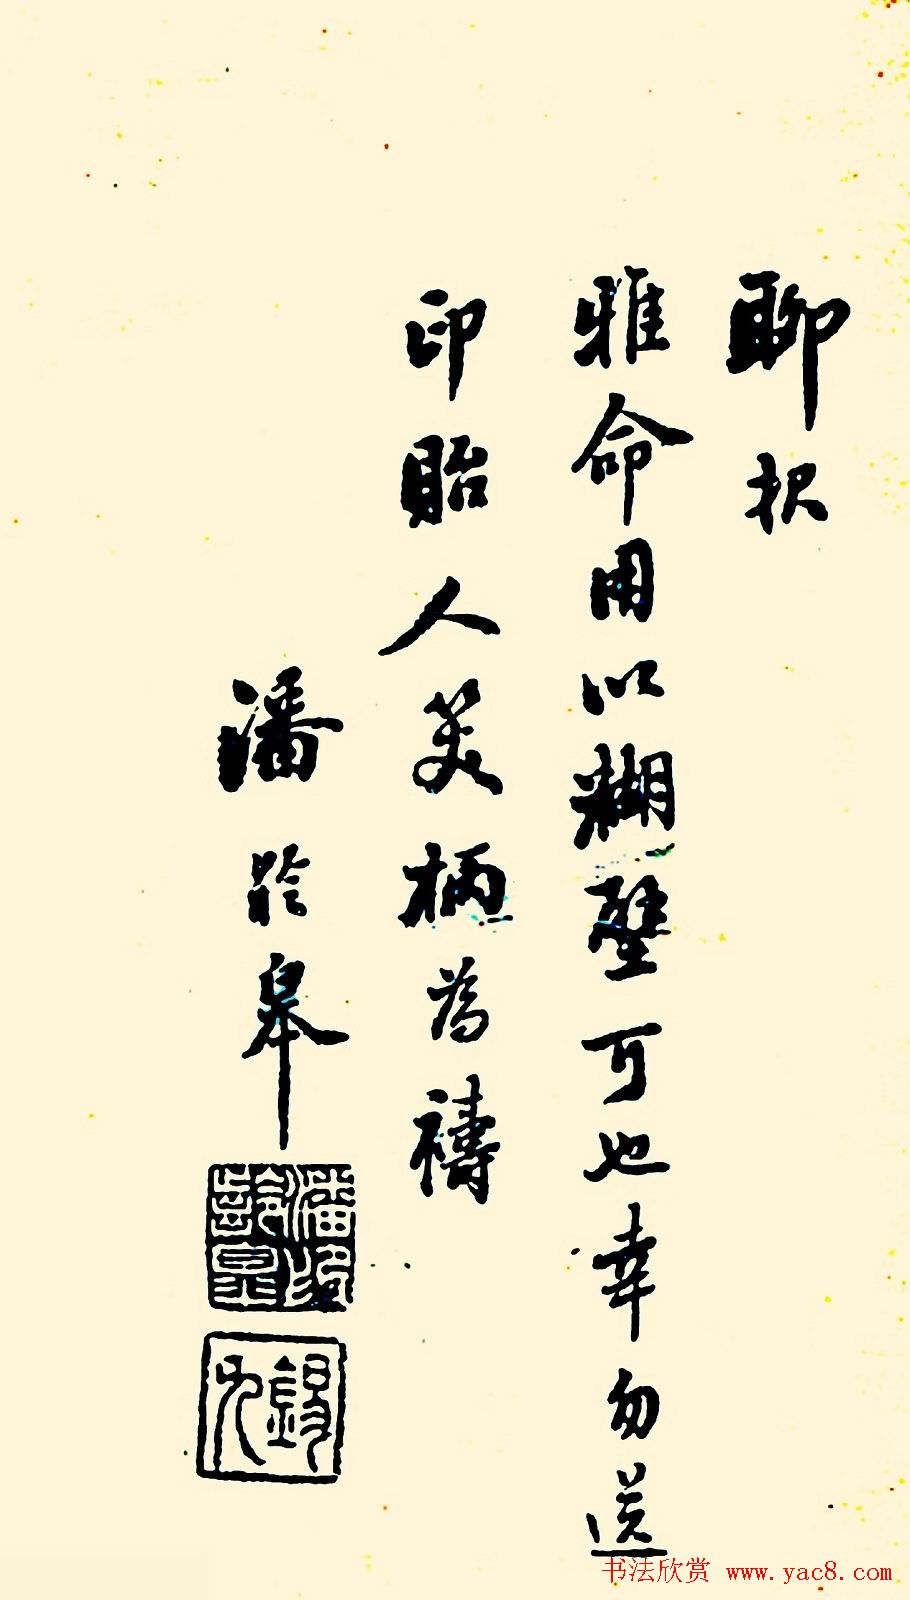 聊報
雅命用以糊壁可也幸勿送
印貽人笑柄為禱
潘齡皋
潘齡皋
錫九
书法欣赏 www.yac8.com